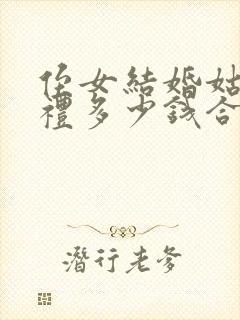 侄女結婚姑
禮多少錢合
潛行老爹